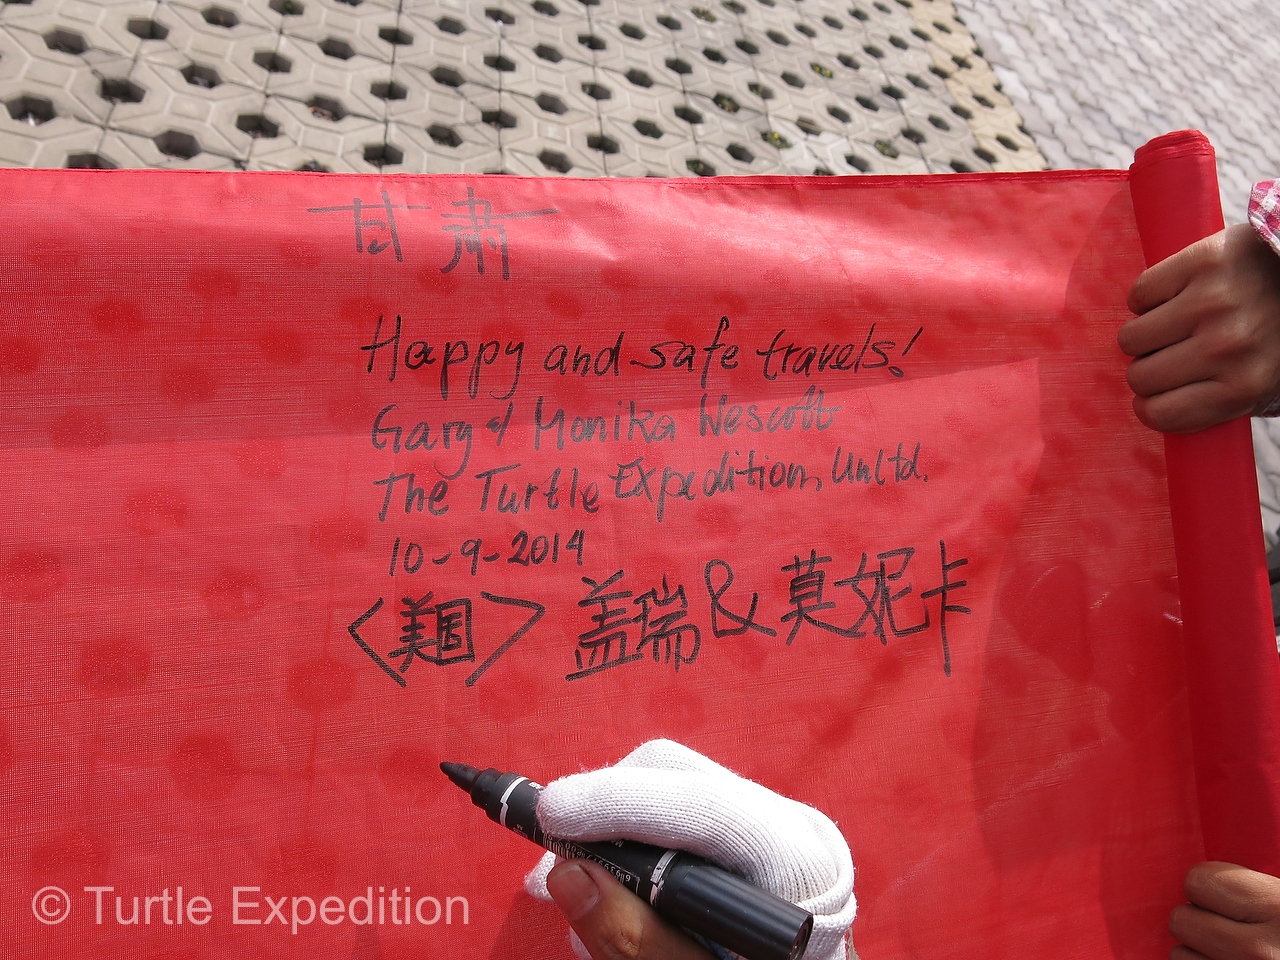 甘肃
Happy and safe travels!
Gary & Monika Wescott
The Turtle Expedition, Unltd.
10-9-2014
<美国> 盖瑞 & 莫妮卡
© Turtle Expedition